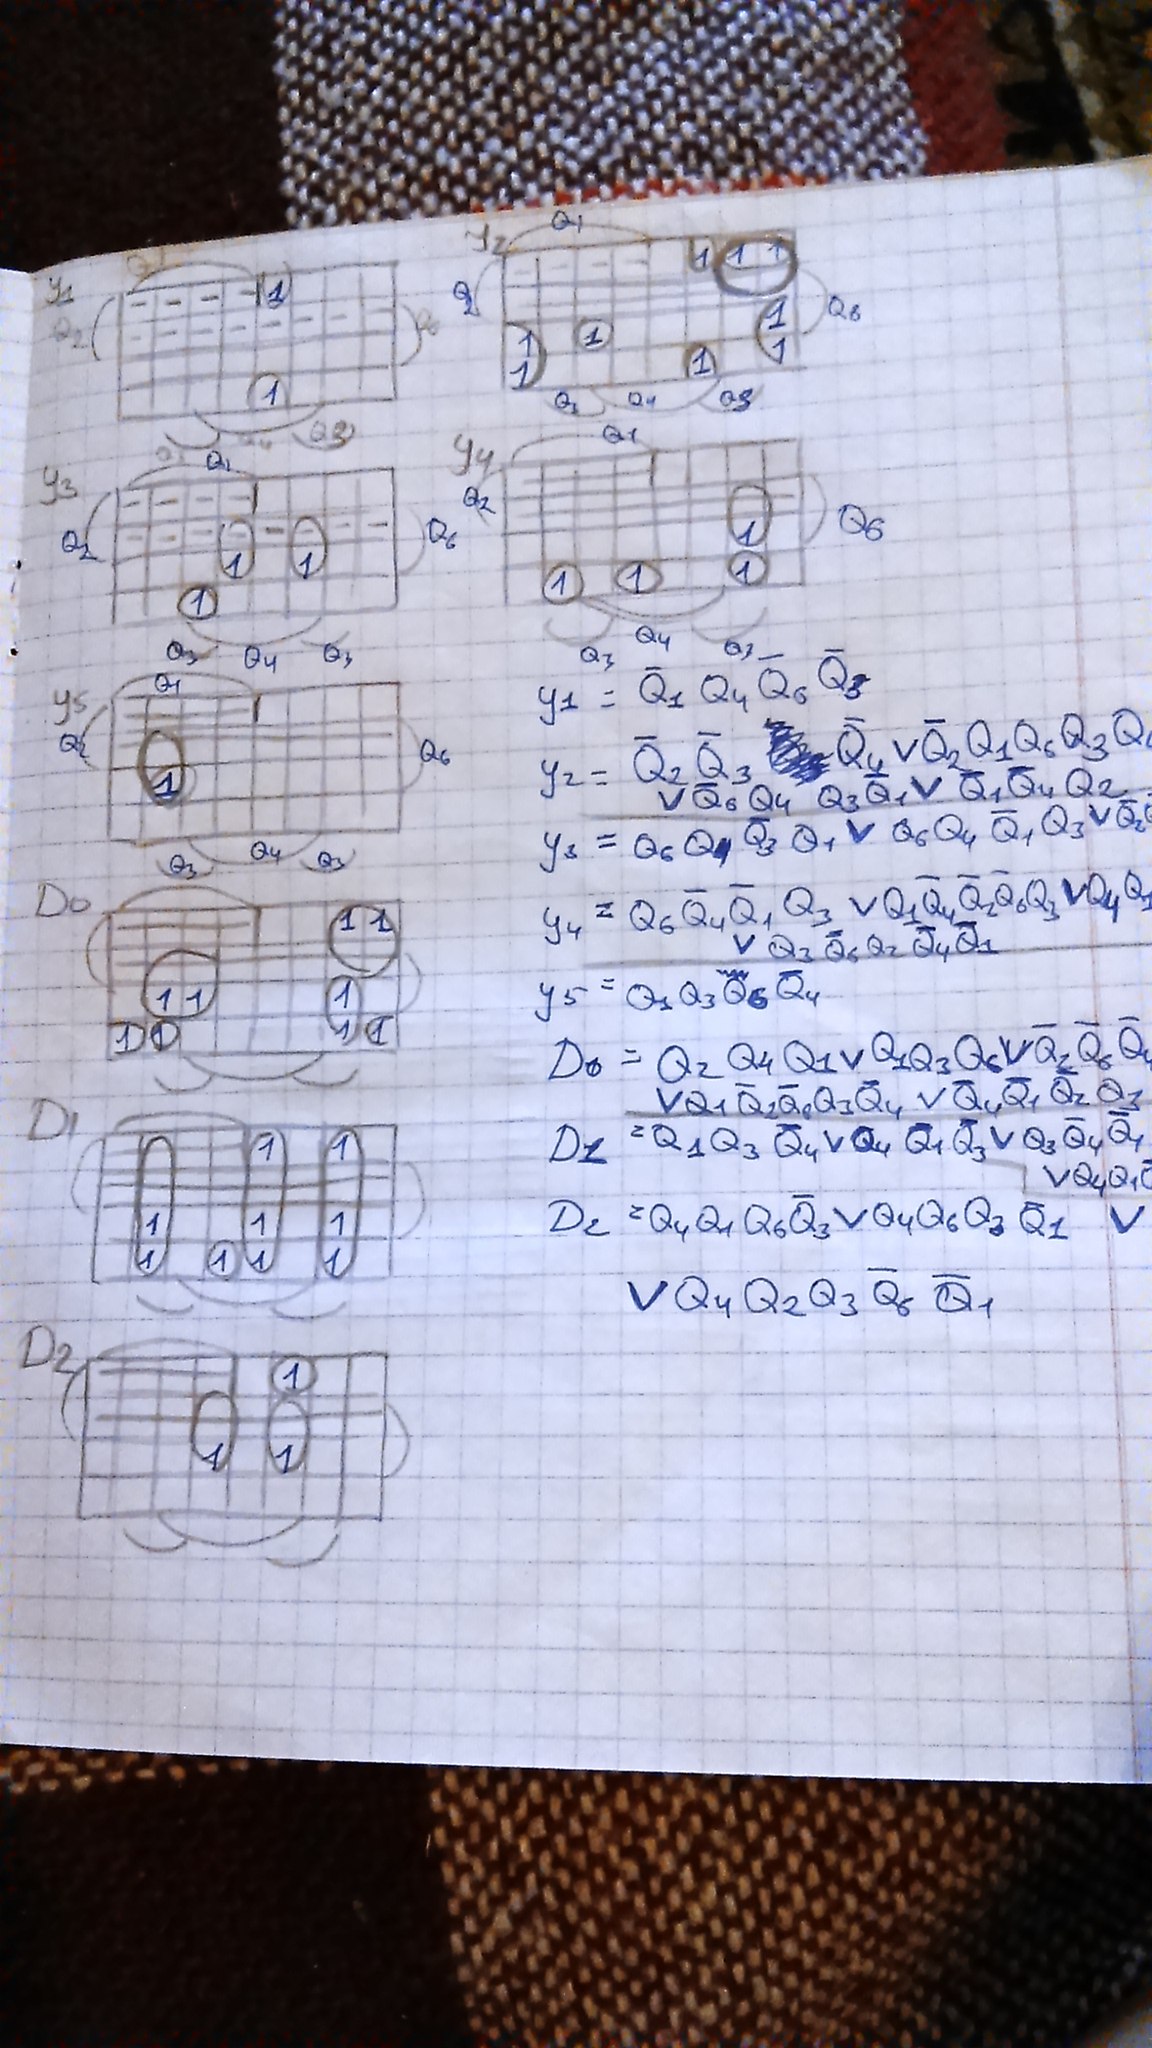 y1 Q1
Q2 1 Q6
1
Q3 Q4 Q3
y2 Q1
Q2 1 1 1 Q6
1 1 1
1 1 1
Q3 Q4 Q3
y3 Q1
Q2 1 1 Q6
1
Q3 Q4 Q3
y4 Q1
Q2 1 Q6
1 1 1
Q3 Q4 Q3
y5 Q1
Q2 1 Q6
Q3 Q4 Q3
D0
1 1
1 1 1
1 1 1 1
D1
1 1
1 1 1
1 1 1 1
D2
1
1 1
y1 = Q̄1 Q4 Q̄6 Q̄3
y2 = Q̄2 Q̄3 Q̄4 ∨ Q̄2 Q1 Q6 Q3
∨ Q̄6 Q4 Q3 Q̄1 ∨ Q̄1 Q̄4 Q2
y3 = Q6 Q4 Q̄3 Q1 ∨ Q6 Q4 Q̄1 Q3 ∨ Q̄2
y4 = Q6 Q̄4 Q̄1 Q3 ∨ Q1 Q̄4 Q̄2 Q̄6 Q3 ∨ Q4 Q1
∨ Q3 Q̄6 Q2 Q̄4 Q̄1
y5 = Q1 Q3 Q6 Q̄4
D0 = Q2 Q4 Q1 ∨ Q1 Q3 Q6 ∨ Q̄2 Q̄6 Q̄4
∨ Q1 Q̄2 Q̄6 Q3 Q̄4 ∨ Q̄4 Q̄1 Q̄2 Q3
D1 = Q1 Q3 Q̄4 ∨ Q4 Q̄1 Q̄3 ∨ Q3 Q̄4 Q̄1
∨ Q4 Q1
D2 = Q4 Q1 Q6 Q̄3 ∨ Q4 Q6 Q3 Q̄1 ∨
∨ Q4 Q2 Q3 Q̄6 Q̄1